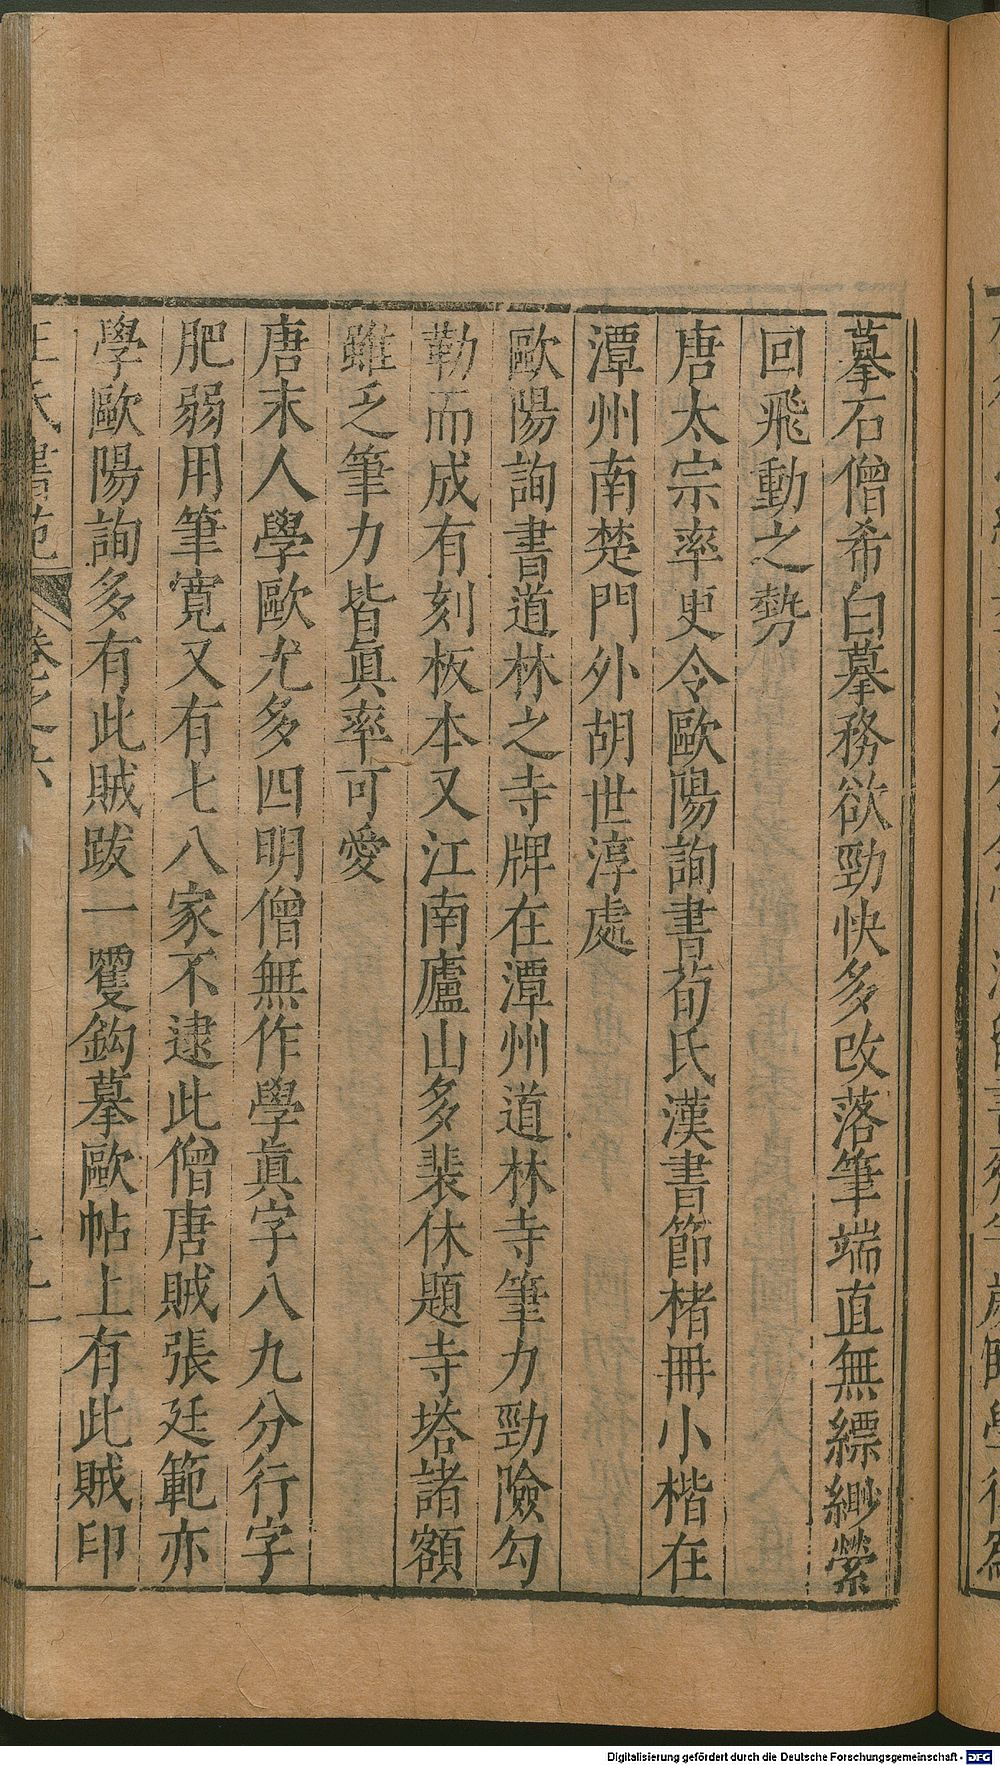 摹石僧希白摹務欲勁快多改落筆端直無縹緲縈
回飛動之勢
唐太宗率更令歐陽詢書荀氏漢書節楮冊小楷在
潭州南楚門外胡世淳處
歐陽詢書道林之寺牌在潭州道林寺筆力勁險勾
勒而成有刻板本又江南廬山多裴休題寺塔諸額
雖乏筆力皆眞率可愛
唐末人學歐尤多四明僧無作學眞字八九分行字
肥弱用筆寛又有七八家不逮此僧唐賊張廷範亦
學歐陽詢多有此賊跋一䂄鈎摹歐帖上有此賊印
王氏書苑 卷之六
Digitalisierung gefördert durch die Deutsche Forschungsgemeinschaft - DFG